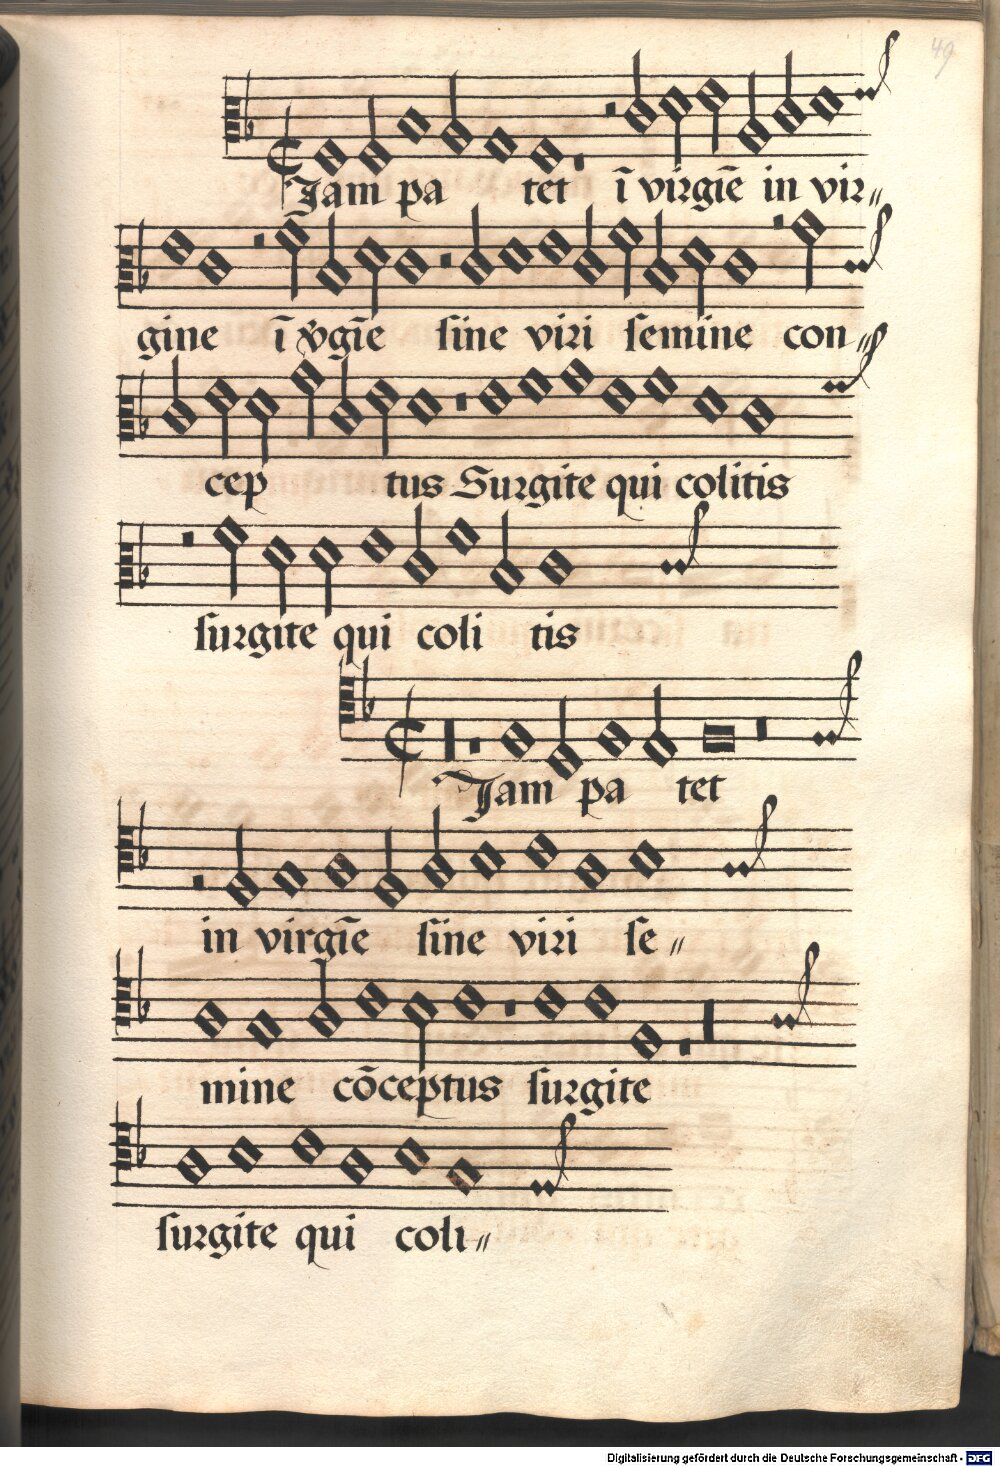 49
Jam pa tet ī virgīe in vir〃
gine ī v̄gīe sine viri semine con〃
cep tus Surgite qui colitis
surgite qui coli tis
Jam pa tet
in virgīe sine viri se〃
mine cōceptus surgite
surgite qui coli〃
Digitalisierung gefördert durch die Deutsche Forschungsgemeinschaft - DFG